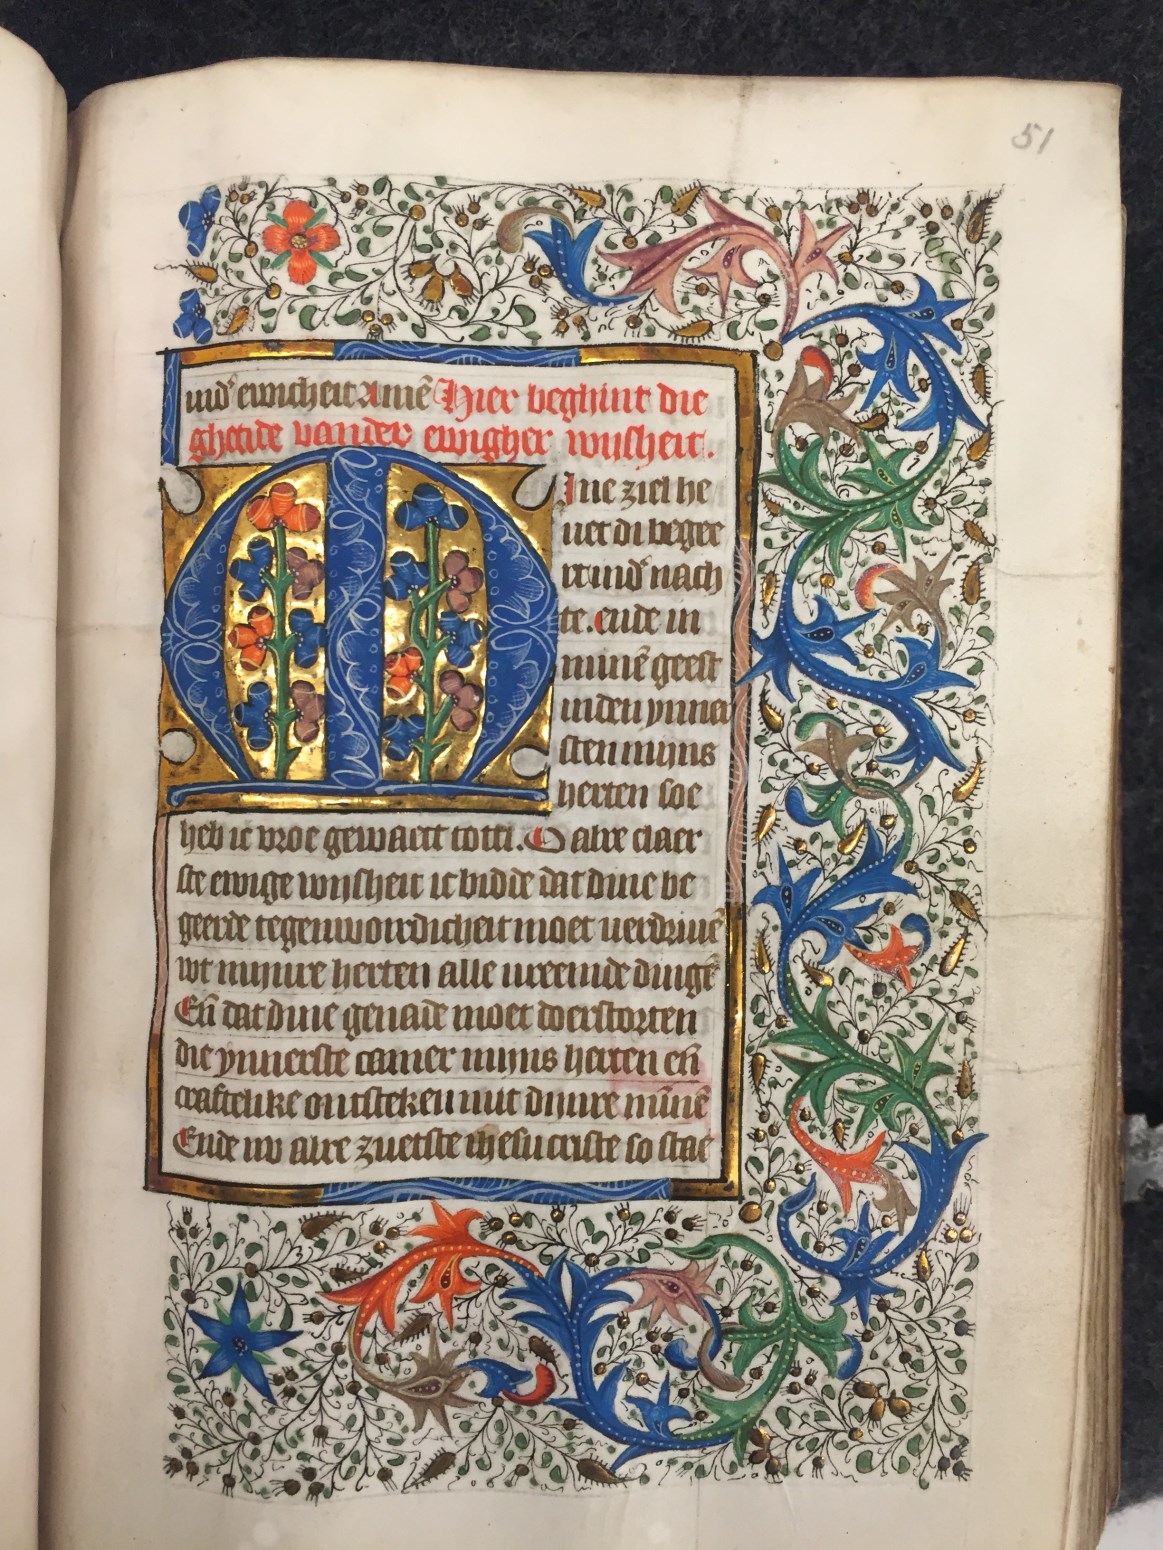 51
nid᷒ ewicheit Amē Hier beghint die
ghetide vander ewigher wijsheit.
M Jne ziel he
uet di begee
rt inid᷒ nach
te. ende in
minē geest
in den ynner
sten mijns
herten soe
heb ic vroe gewaect totti. O alre claer
ste ewige wijsheit ic bidde dat dine be
geerde tegenwoirdicheit moet verdriuē
wt mijnre herten alle vreemde dingē
Eñ dat dine genade moet doerstorten
die ynnerste camer mijns herten eñ
craftelike ontsteken mit dijnre mīnē
Ende uv alre zuetste ihesu criste so stae